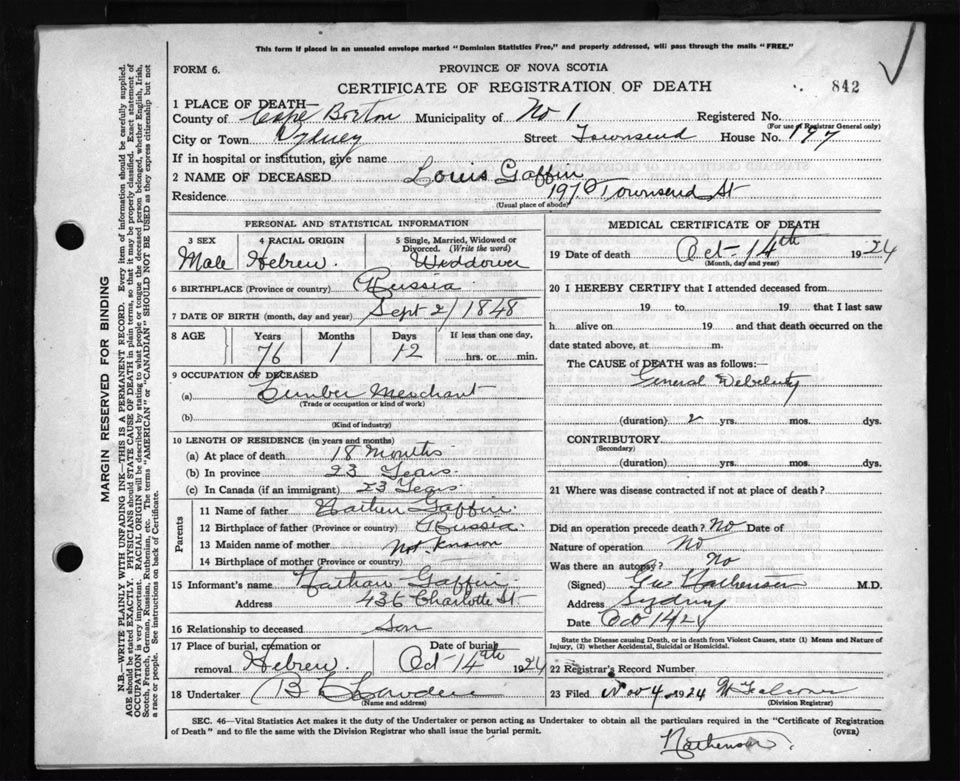 This form if placed in an unsealed envelope marked "Dominion Statistics Free," and properly addressed, will pass through the mails "FREE."
FORM 6.
PROVINCE OF NOVA SCOTIA
CERTIFICATE OF REGISTRATION OF DEATH
842
1 PLACE OF DEATH—
County of Cape Breton Municipality of No 1 Registered No.
(For use of Registrar General only)
City or Town Sydney Street Townsend House No. 197
If in hospital or institution, give name
2 NAME OF DECEASED Louis Gaffin
Residence 197 Townsend St
(Usual place of abode)
PERSONAL AND STATISTICAL INFORMATION
3 SEX Male
4 RACIAL ORIGIN Hebrew.
5 Single, Married, Widowed or Divorced. (Write the word) Widdower
6 BIRTHPLACE (Province or country) Russia
7 DATE OF BIRTH (month, day and year) Sept 2/1848
8 AGE Years 76 Months 1 Days 12 If less than one day, hrs. or min.
9 OCCUPATION OF DECEASED
(a) Lumber Merchant
(Trade or occupation or kind of work)
(b)
(Kind of industry)
10 LENGTH OF RESIDENCE (in years and months)
(a) At place of death 18 Months
(b) In province 23 Years.
(c) In Canada (if an immigrant) 23 Years
Parents
11 Name of father Gaffin.
12 Birthplace of father (Province or country) Russia.
13 Maiden name of mother Not Known
14 Birthplace of mother (Province or country)
15 Informant's name Nathan Gaffin.
Address 436 Charlotte St
16 Relationship to deceased Son
17 Place of burial, cremation or removal Hebrew. Date of burial Oct 14th 1924
18 Undertaker B
(Name and address)
MEDICAL CERTIFICATE OF DEATH
19 Date of death Oct - 14th 1924
(Month, day and year)
20 I HEREBY CERTIFY that I attended deceased from
19 to 19 that I last saw
h alive on 19 and that death occurred on the
date stated above, at m.
The CAUSE of DEATH was as follows:—
General Debelity
(duration) 2 yrs. mos. dys.
CONTRIBUTORY
(Secondary)
(duration) yrs. mos. dys.
21 Where was disease contracted if not at place of death?
Did an operation precede death? No Date of
Nature of operation No
Was there an autopsy? No
(Signed) M.D.
Address Sydney
Date Oct 14 24
State the Disease causing Death, or in death from Violent Causes, state (1) Means and Nature of Injury, (2) whether Accidental, Suicidal or Homicidal.
22 Registrar's Record Number
23 Filed Nov 4 1924
(Division Registrar)
SEC. 46—Vital Statistics Act makes it the duty of the Undertaker or person acting as Undertaker to obtain all the particulars required in the "Certificate of Registration
of Death" and to file the same with the Division Registrar who shall issue the burial permit.
(OVER)
MARGIN RESERVED FOR BINDING
N.B.—WRITE PLAINLY WITH UNFADING INK—THIS IS A PERMANENT RECORD. Every item of information should be carefully supplied.
AGE should be stated EXACTLY. PHYSICIANS should STATE CAUSE OF DEATH in plain terms, so that it may be properly classified. Exact statement of
OCCUPATION is very important. RACIAL ORIGIN will be described by stating to what people or tongue the deceased person belonged, whether English, Irish,
Scotch, French, German, Russian, Ruthenian, etc. The terms "AMERICAN" or "CANADIAN" SHOULD NOT BE USED as they express citizenship but not
a race or people. See instructions on back of Certificate.